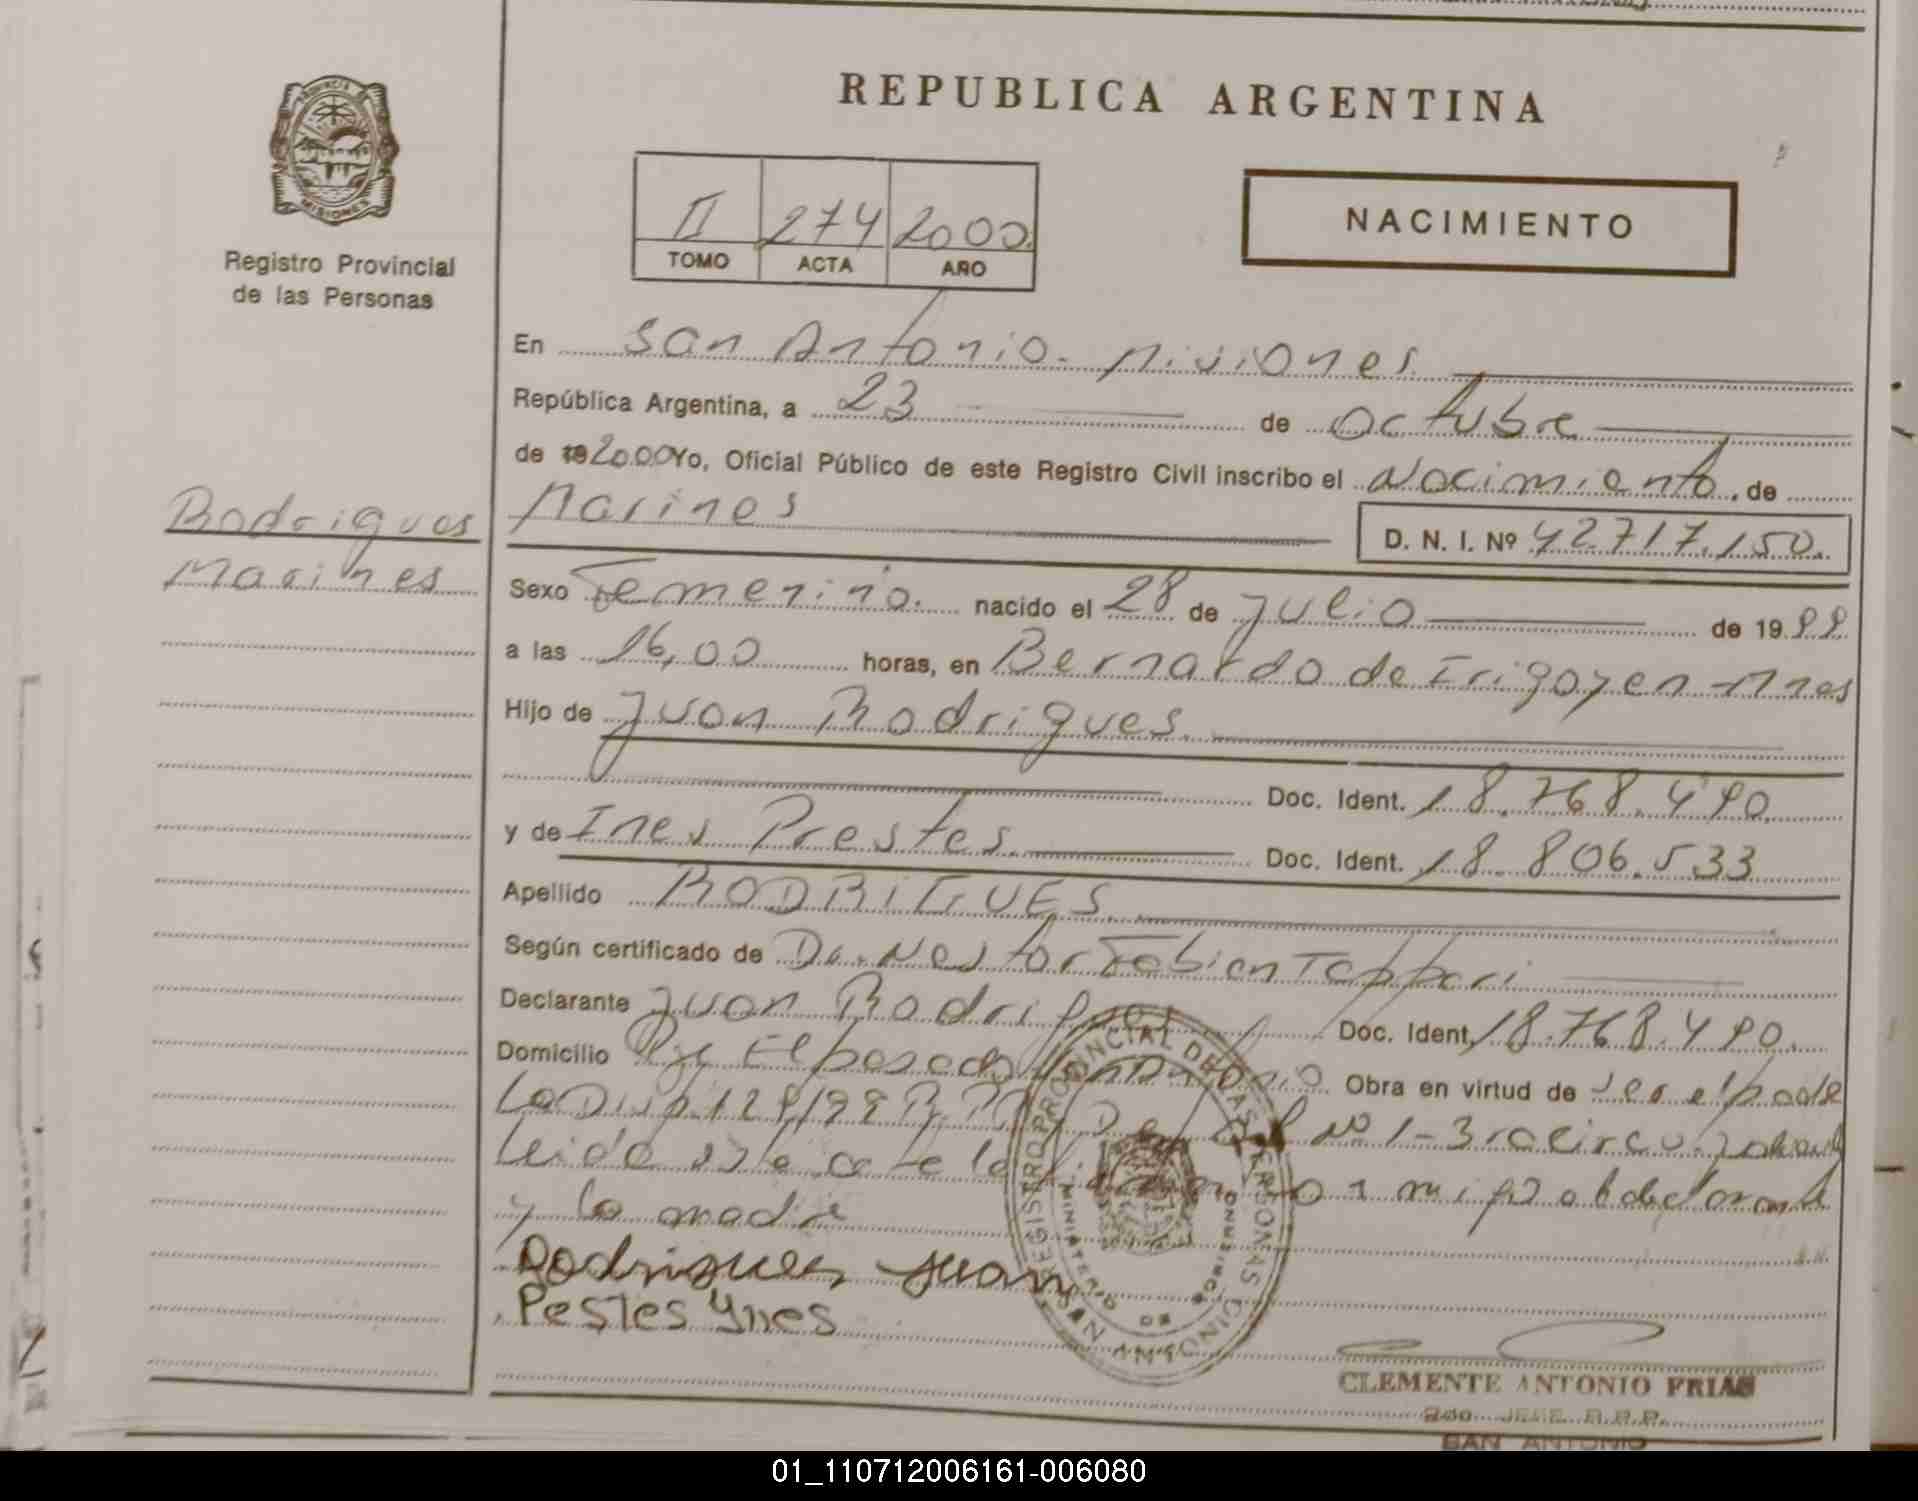 REPUBLICA ARGENTINA
PROVINCIA DE
MISIONES
Registro Provincial
de las Personas
II 274 2000
TOMO ACTA AÑO
NACIMIENTO
En San Antonio - Misiones
República Argentina, a 23 de Octubre
de 19 2000 Yo, Oficial Público de este Registro Civil inscribo el Nacimiento de
Marines
D. N. I. Nº 42.717.150.
Rodrigues
Marines
Sexo Femenino. nacido el 28 de Julio de 19 99
a las 16,00 horas, en Bernardo de Irigoyen - Mnes
Hijo de Juan Rodrigues.
Doc. Ident. 18.768.490.
y de Ines Prestes. Doc. Ident. 18.806.533
Apellido RODRIGUES
Según certificado de Dr. Nestor Fabian Tappari
Declarante Juan Rodrigues Doc. Ident. 18.768.490.
Domicilio Pje El pesado San Antonio Obra en virtud de ser el padre
La Disp. 128/99 Nº 1-3
Leida este acta la
y la madre
Rodrigues Juan
Pestes Ynes
REGISTRO PROVINCIAL DE LAS PERSONAS
MINISTERIO DE
SAN ANTONIO
CLEMENTE ANTONIO FRIAS
2do. JEFE R.P.P.
SAN ANTONIO
01_110712006161-006080